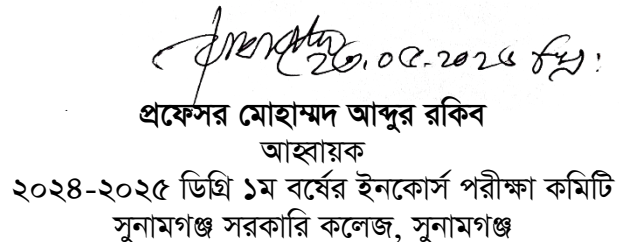 ২০.০৫.২০২৫ খ্রি:
প্রফেসর মোহাম্মদ আব্দুর রকিব
আহ্বায়ক
২০২৪-২০২৫ ডিগ্রি ১ম বর্ষের ইনকোর্স পরীক্ষা কমিটি
সুনামগঞ্জ সরকারি কলেজ, সুনামগঞ্জ